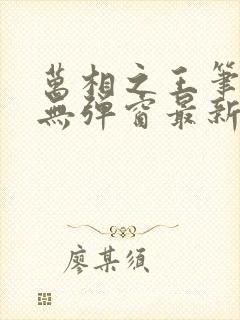 萬相之王筆
無彈窗最新
廖某須